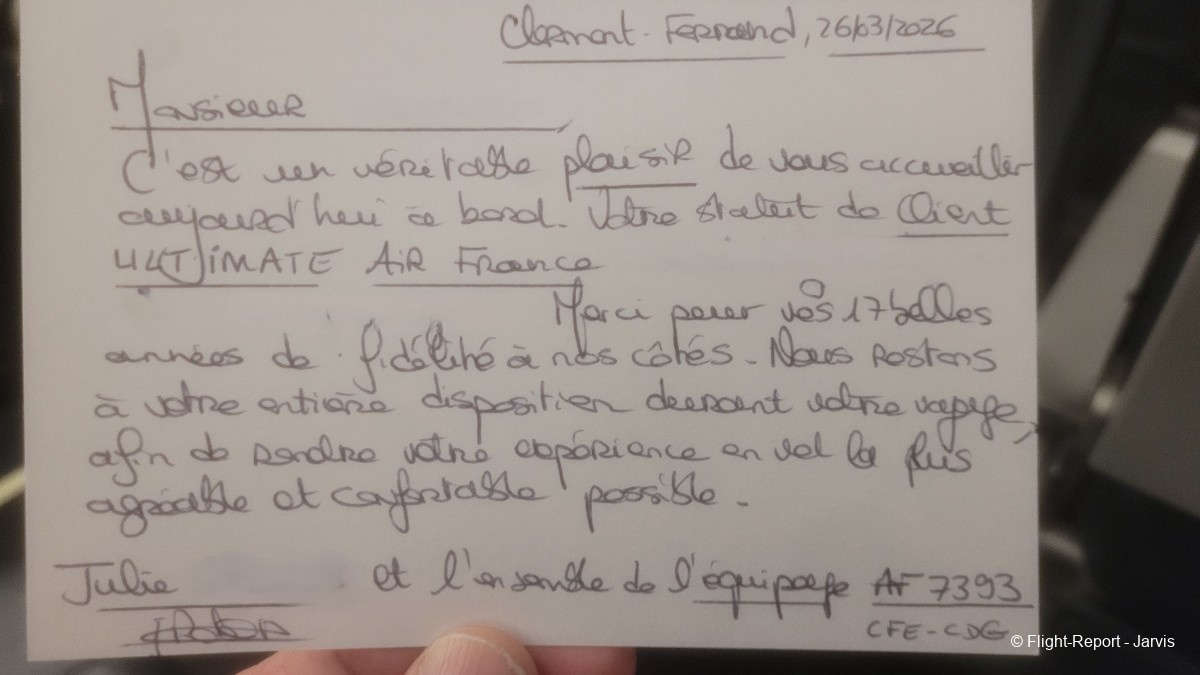 Clermont-Ferrand, 26/03/2026
Monsieur
C'est un véritable plaisir de vous accueillir
aujourd'hui à bord. Votre statut de Client
ULTIMATE AIR France
Merci pour vos 17 belles
années de fidélité à nos côtés. Nous restons
à votre entière disposition durant votre voyage,
afin de rendre votre expérience en vol la plus
agréable et confortable possible.
Julie et l'ensemble de l'équipage AF 7393
CFE-CDG
© Flight-Report - Jarvis